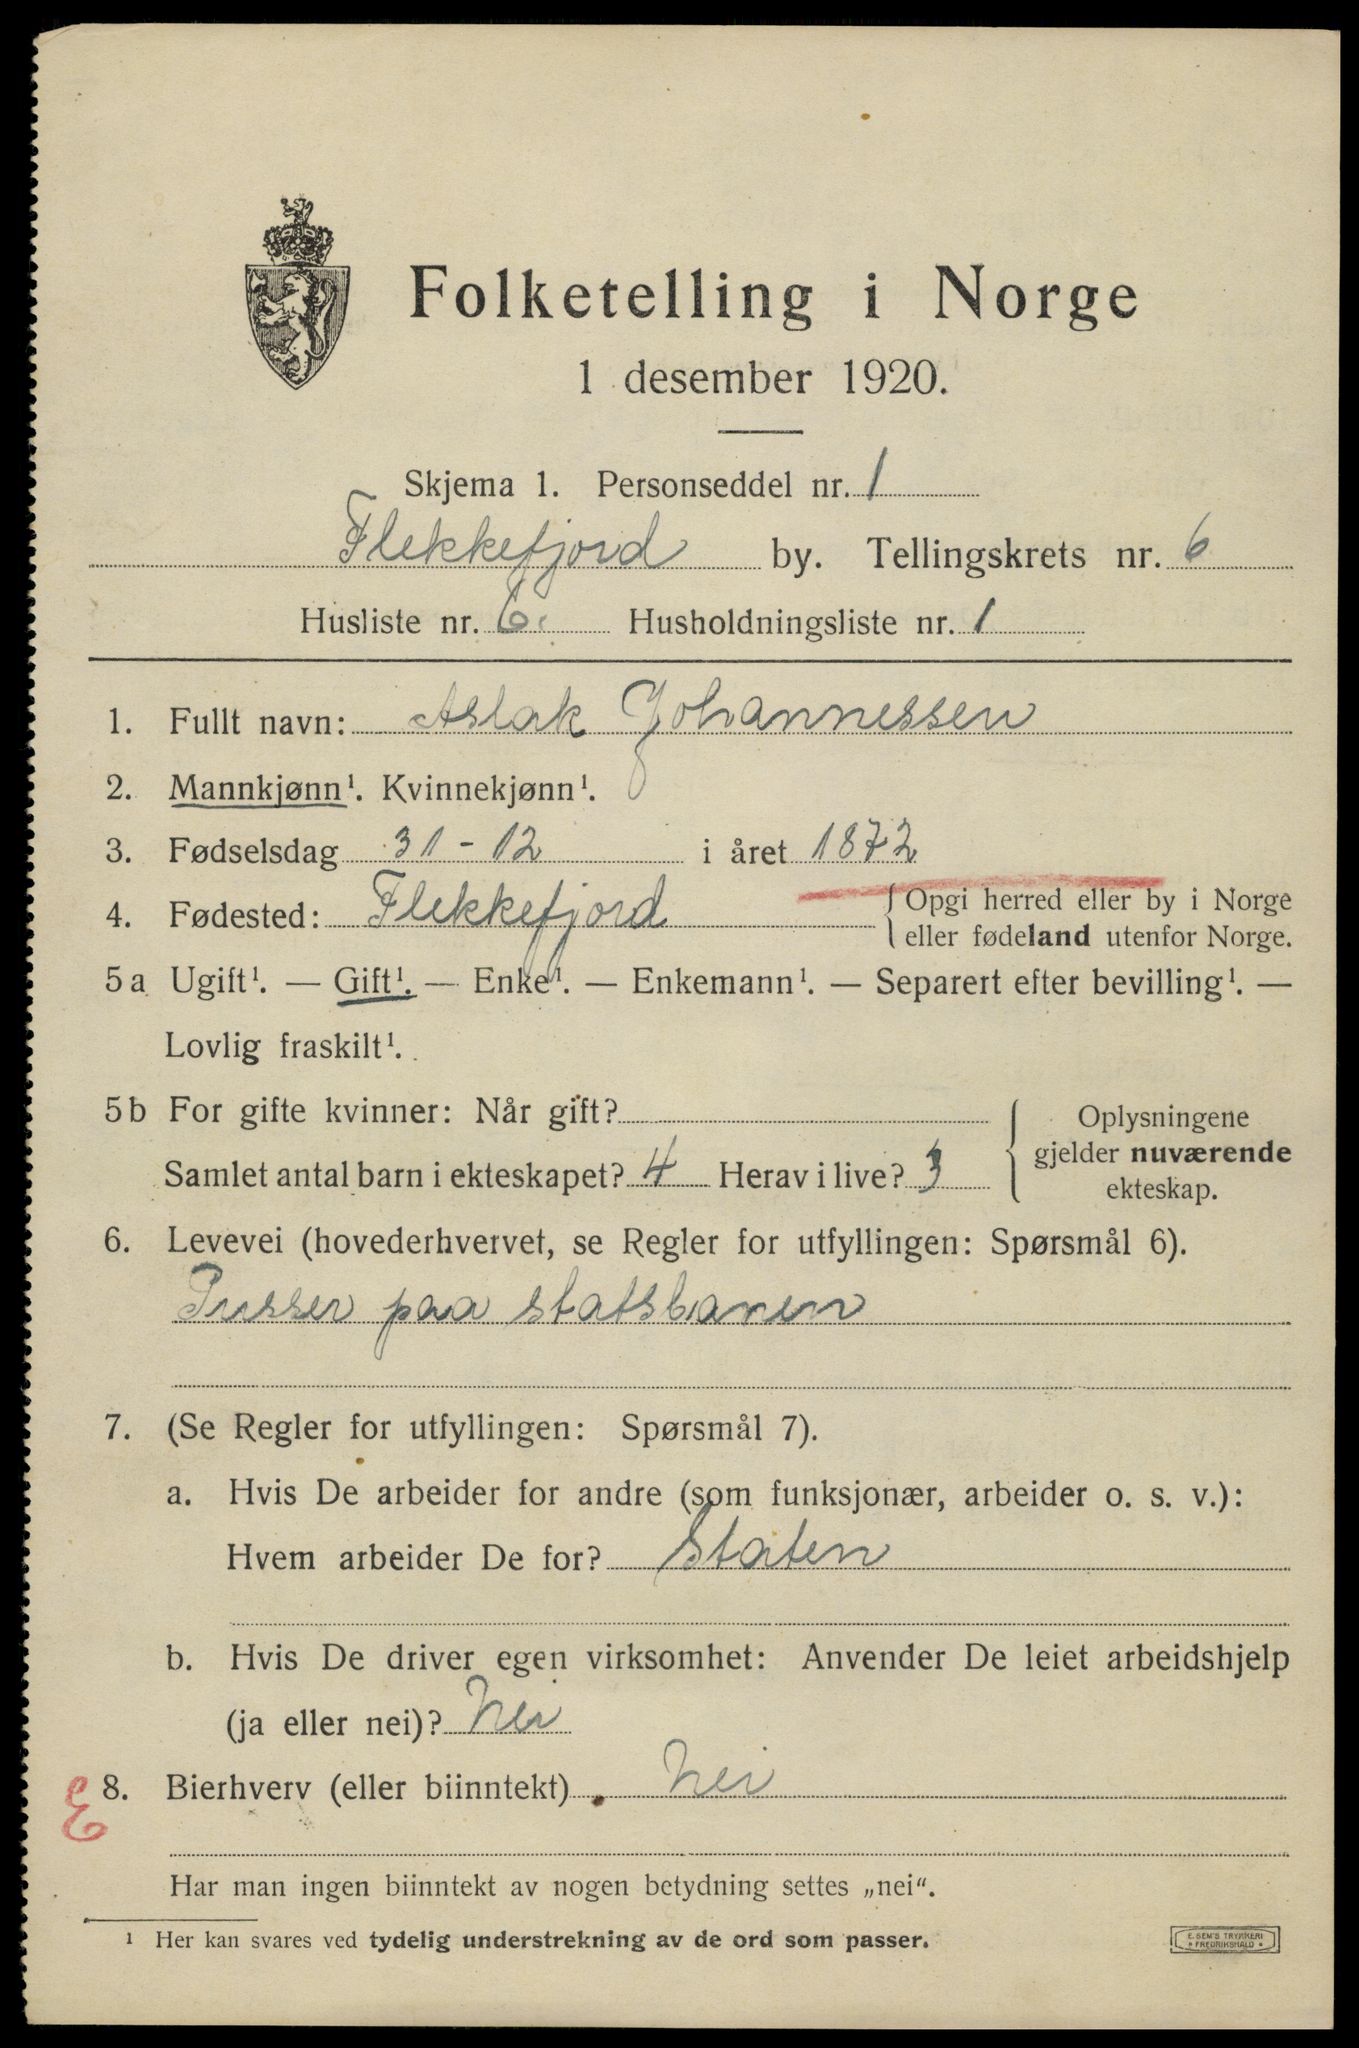 Folketelling i Norge
1 desember 1920.
Skjema 1. Personseddel nr. 1
Flekkefjord by. Tellingskrets nr. 6
Husliste nr. 6. Husholdningsliste nr. 1
1. Fullt navn: Aslak Johannessen
2. Mannkjønn¹. Kvinnekjønn¹.
3. Fødselsdag 31-12 i året 1872
4. Fødested: Flekkefjord {Opgi herred eller by i Norge
eller fødeland utenfor Norge.
5a Ugift¹. — Gift¹. — Enke¹. — Enkemann¹. — Separert efter bevilling¹. —
Lovlig fraskilt¹.
5b For gifte kvinner: Når gift?
Samlet antal barn i ekteskapet? 4 Herav i live? 3
{Oplysningene
gjelder nuværende
ekteskap.
6. Levevei (hovederhvervet, se Regler for utfyllingen: Spørsmål 6).
Pusser paa statsbanen
7. (Se Regler for utfyllingen: Spørsmål 7).
a. Hvis De arbeider for andre (som funksjonær, arbeider o. s. v.):
Hvem arbeider De for? Staten
b. Hvis De driver egen virksomhet: Anvender De leiet arbeidshjelp
(ja eller nei)? Nei
E 8. Bierhverv (eller biinntekt) Nei
Har man ingen biinntekt av nogen betydning settes „nei“.
¹ Her kan svares ved tydelig understrekning av de ord som passer.
E. SEM'S TRYKKERI
• FREDRIKSHALD •